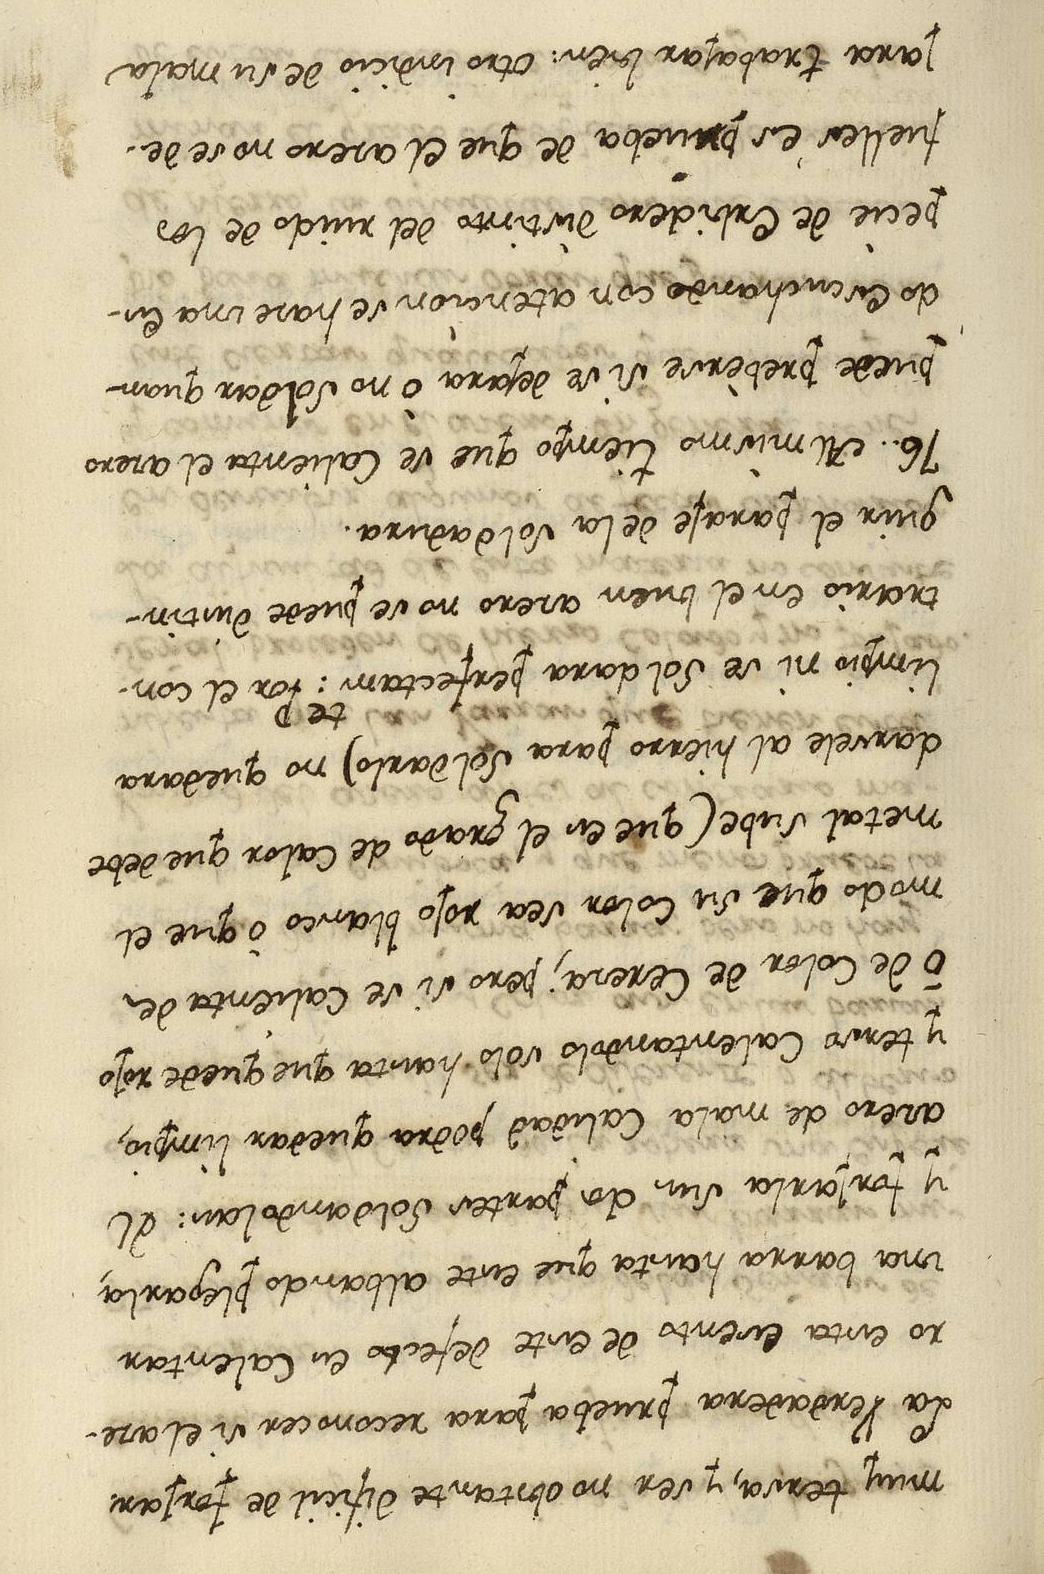 muy tersa, y ser no obstante dificil de forjar.
La Verdadera prueba para reconocer si el aze-
ro esta esento de este defecto es Calentar
una barra hasta que este albando plegarla,
y forjarla sus dos partes Soldandolas: El
azero de mala Calidad podra quedar limpio,
y terso Calentandolo solo hasta que quede rojo
ô de Color de Cereza; pero si se Calienta de
modo que su Color sea rojo blanco ò que el
metal sube (que es el grado de Calor que debe
darsele al hierro para Soldarlo) no quedara
limpio ni se Soldara perfectam.te: Por el con-
trario en el buen azero no se puede distin-
guir el paraje de la Soldadura.
76.. Al mismo tiempo que se Calienta el azero
puede prebèrse si se dejara ò no Soldar quan-
do escuchando con atencion se hase una Es-
pecie de Erbidero distinto del ruido de los
fuelles es prueba de que el azero no se de-
para trabajar bien: otro indicio de su mala